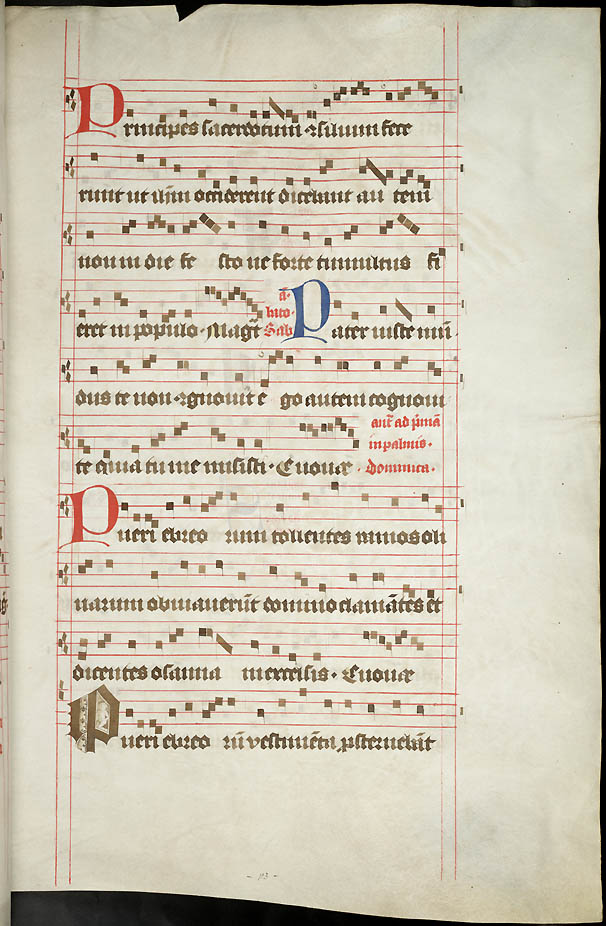 Principes sacerdotum ⁊ silium fece
runt ut ihm occiderent dicebant au tem
non in die fe sto ne forte tumultus fi
eret in populo · Magt̄ aᷓ · bn̄to · Sab Pater iuste mū
dus te non ⁊gnouit e go autem cognoui
te quia tu me misisti · Euouae · ant̄ ad p̄mā in palmis · dominica ·
Pueri ebreo rum tollentes ramos oli
uarum obuiauerūt domino clamātes et
dicentes osanna in excelsis · Euouae
Pueri ebreo rū vestimēta ꝓsternebāt